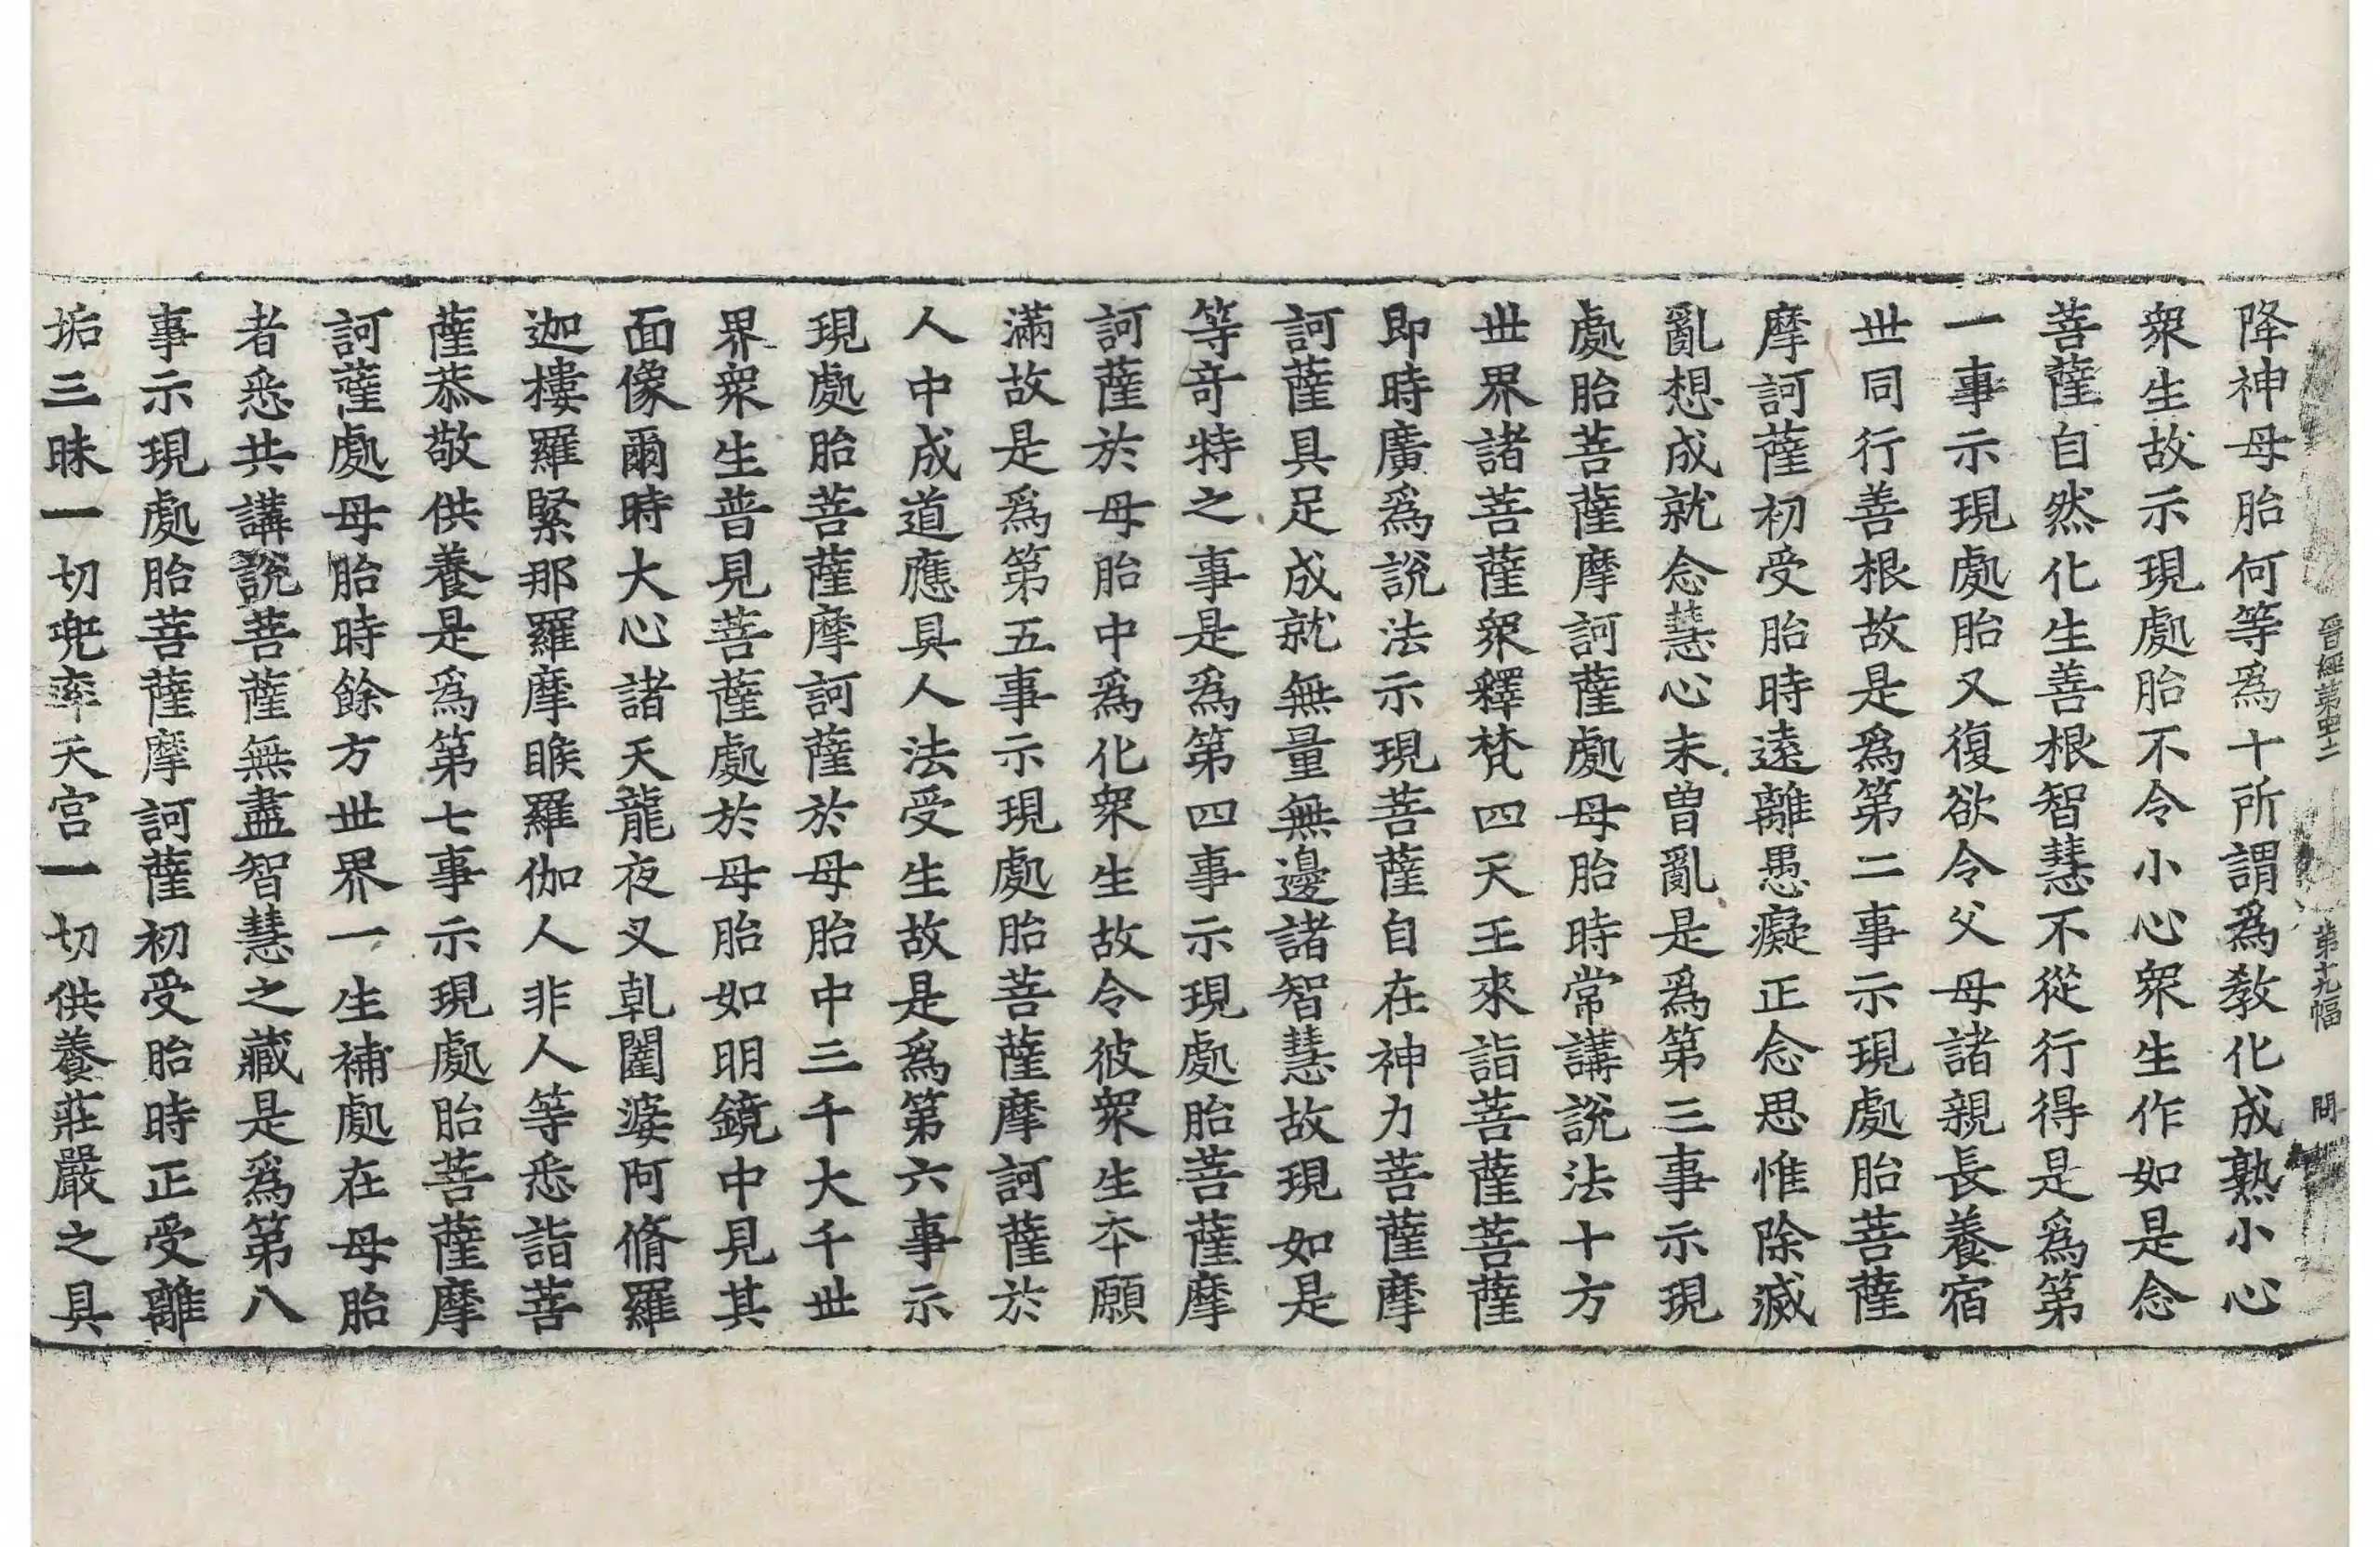 晉經第卌二　第十九幅　問
降神母胎何等爲十所謂爲教化成熟小心
衆生故示現處胎不令小心衆生作如是念
菩薩自然化生善根智慧不從行得是爲第
一事示現處胎又復欲令父母諸親長養宿
丗同行善根故是爲第二事示現處胎菩薩
摩訶薩初受胎時遠離愚癡正念思惟除滅
亂想成就念慧心未曽亂是爲第三事示現
處胎菩薩摩訶薩處母胎時常講說法十方
丗界諸菩薩衆釋梵四天王來詣菩薩菩薩
即時廣爲說法示現菩薩自在神力菩薩摩
訶薩具足成就無量無邊諸智慧故現如是
等奇特之事是爲第四事示現處胎菩薩摩
訶薩於母胎中爲化衆生故令彼衆生夲願
滿故是爲第五事示現處胎菩薩摩訶薩於
人中成道應具人法受生故是爲第六事示
現處胎菩薩摩訶薩於母胎中三千大千丗
界衆生普見菩薩處於母胎如明鏡中見其
面像爾時大心諸天龍夜叉乹闥婆阿脩羅
迦樓羅緊那羅摩睺羅伽人非人等悉詣菩
薩恭敬供養是爲第七事示現處胎菩薩摩
訶薩處母胎時餘方丗界一生補處在母胎
者悉共講說菩薩無盡智慧之藏是爲第八
事示現處胎菩薩摩訶薩初受胎時正受離
垢三昧一切兜率天宮一切供養莊嚴之具